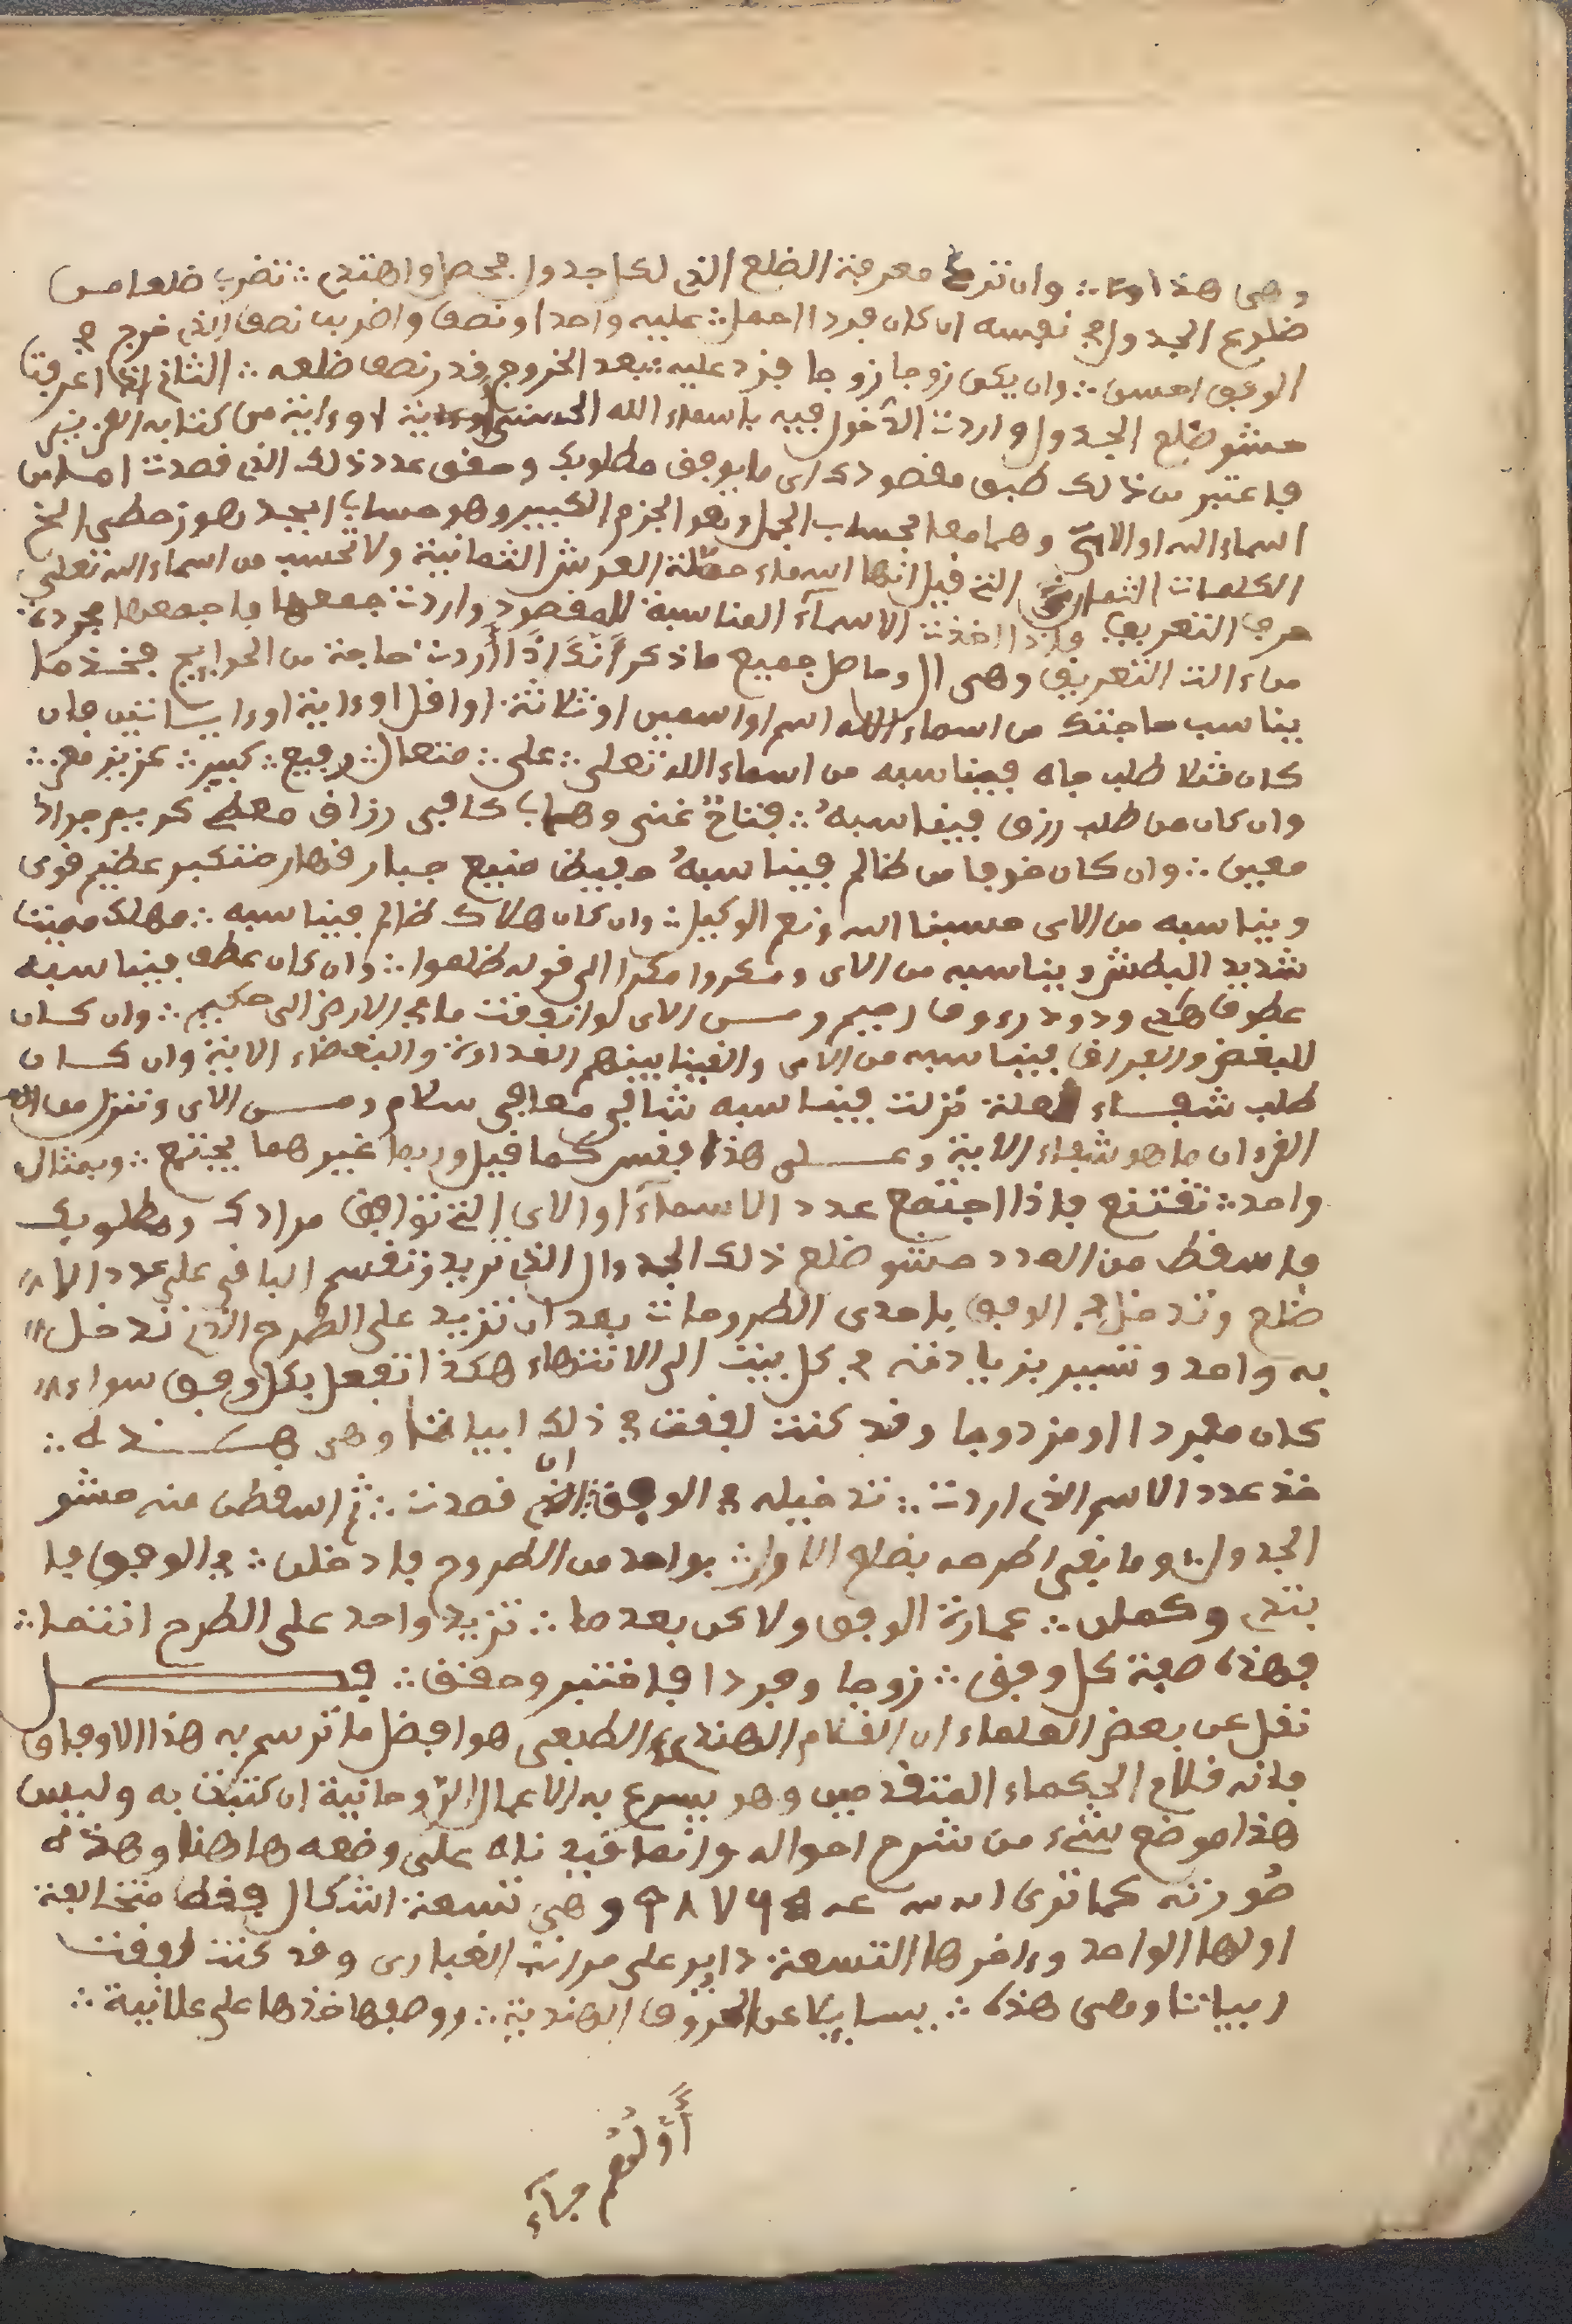 وهى هذا ∴ وان ترد معرفة الضلع الذى لكل جدول محصل واهتدى ∴ تضرب ضلعا من
ضلوع الجدول فى نفسه ان كان فردا احمل ∴ عليه واحدا ونصف واضرب نصف الذى خرج فى
الوفق احسن ∴ وان يكن زوجا زوجا فزد عليه ∴ بعد الخروج قدر نصف ضلعه ∴ الثانى اذا عرفت
حشو ضلع الجدول واردت الدخول فيه باسماء الله الحسنى او ءاية من كتابه العزيز
فاعتبر من ذلك طبق مقصودك اى ما يوفق مطلوبك وحقق عدد ذلك الذى قصدت
اسماء الله او الآى وهما معا بحساب الجمل وهو الجزم الكبير وهو حساب ابجد هوز حطى الخ
الكلمات الثمانية التى قيل انها اسماء حملة العرش الثمانية ولا تحسب من اسماء الله تعلى
حرف التعريف واذا اخذت الاسماء المناسبة للمقصود واردت جمعها فاجمعها مجردة
من ءالت التعريف وهى ال وحاصل جميع ما ذكر أنك اذا أردت حاجة من الحوايج فخذ ما
يناسب حاجتك من اسماء الله اسم او اسمين او ثلاثة او اقل او ءاية او ءايتين فان
كان مثلا طلب جاه فيناسبه من اسماء الله تعلى ∴ على ∴ متعال ∴ رفيع ∴ كبير ∴ عزيز معز ∴
وان كان من طلب رزق فيناسبه ∴ فتاح غنى وهاب كافى رزاق معطى كريم جواد
معين ∴ وان كان خوفا من ظالم فيناسبه حفيظ منيع جبار قهار متكبر عظيم قوى
ويناسبه من الاى حسبنا الله ونعم الوكيل ∴ وان كان هلاك ظالم فيناسبه ∴ مهلك مميت
شديد البطش ويناسبه من الاى ومكروا مكرا الى قوله ظلموا ∴ وان كان عطف فيناسبه
عطوف ودود رءوف رحيم ومن الاى لو انفقت ما فى الارض الى حكيم ∴ وان كان
للبغض والفراق فيناسبه من الاى والقينا بينهم العداوة والبغضاء الاية وان كان
طلب شفاء لعلة نزلت فيناسبه شافى معافى سلام ومن الاى وننزل من
القرءان ما هو شفاء الاية وعلى هذا فقس كما قيل وربما غيرهما يجتمع ∴ وبمثال
واحد ∴ تقتنع فاذا اجتمع عدد الاسماء او الاى التى توافق مرادك ومطلوبك
فاسقط من العدد حشو ضلع ذلك الجدوال الذى تريد وتقسم الباقى على عدد
ضلع وتدخل فى الوفق باحدى الطروحات بعد ان تزيد على الطرح الذى تدخل
به واحد وتسير بزيادته فى كل بيت الى الانتهاء هكذا تفعل بكل وفق سواء
كان مفردا او مزدوجا وقد كنت لفقت فى ذلك ابياتا وهى هذه ∴
خذ عدد الاسم الذى اردت ∴ تدخيله فى الوفق ان قصدت ∴ ثم اسقطن منه حشو
الجدول ∴ وما بقى اطرحه بضلع الاول ∴ بواحد من الطروح فادخلن ∴ فى الوفق فا
بتدى وكملن ∴ عمارة الوفق ولاكن بعدما ∴ تزيد واحد على الطرح انتما ∴
فهذه صفة كل وفق ∴ زوجا وفردا فاختبر وحقق ∴ فصل
نقل عن بعض العلماء ان القلام الهندى الطبعى هو افضل ما ترسم به هذا الاوفاق
فانه قلام الحكماء المتقدمين وهو يسرع به الاعمال الروحانية ان كتبت به وليس
هذا موضع شىء من شرح احواله وانما قيدناه على وضعه هاهنا وهذه
صورته كما ترى ٩٨٧٦ وهى تسعة اشكال فقط متخالفة
اولها الواحد وءاخرها التسعة داير على مراتب الغبارى وقد كنت لفقت
ابياتا وهى هذه ∴ يسايلا عن الحروف الهندية ∴ ووصفها خذها على علانية ∴